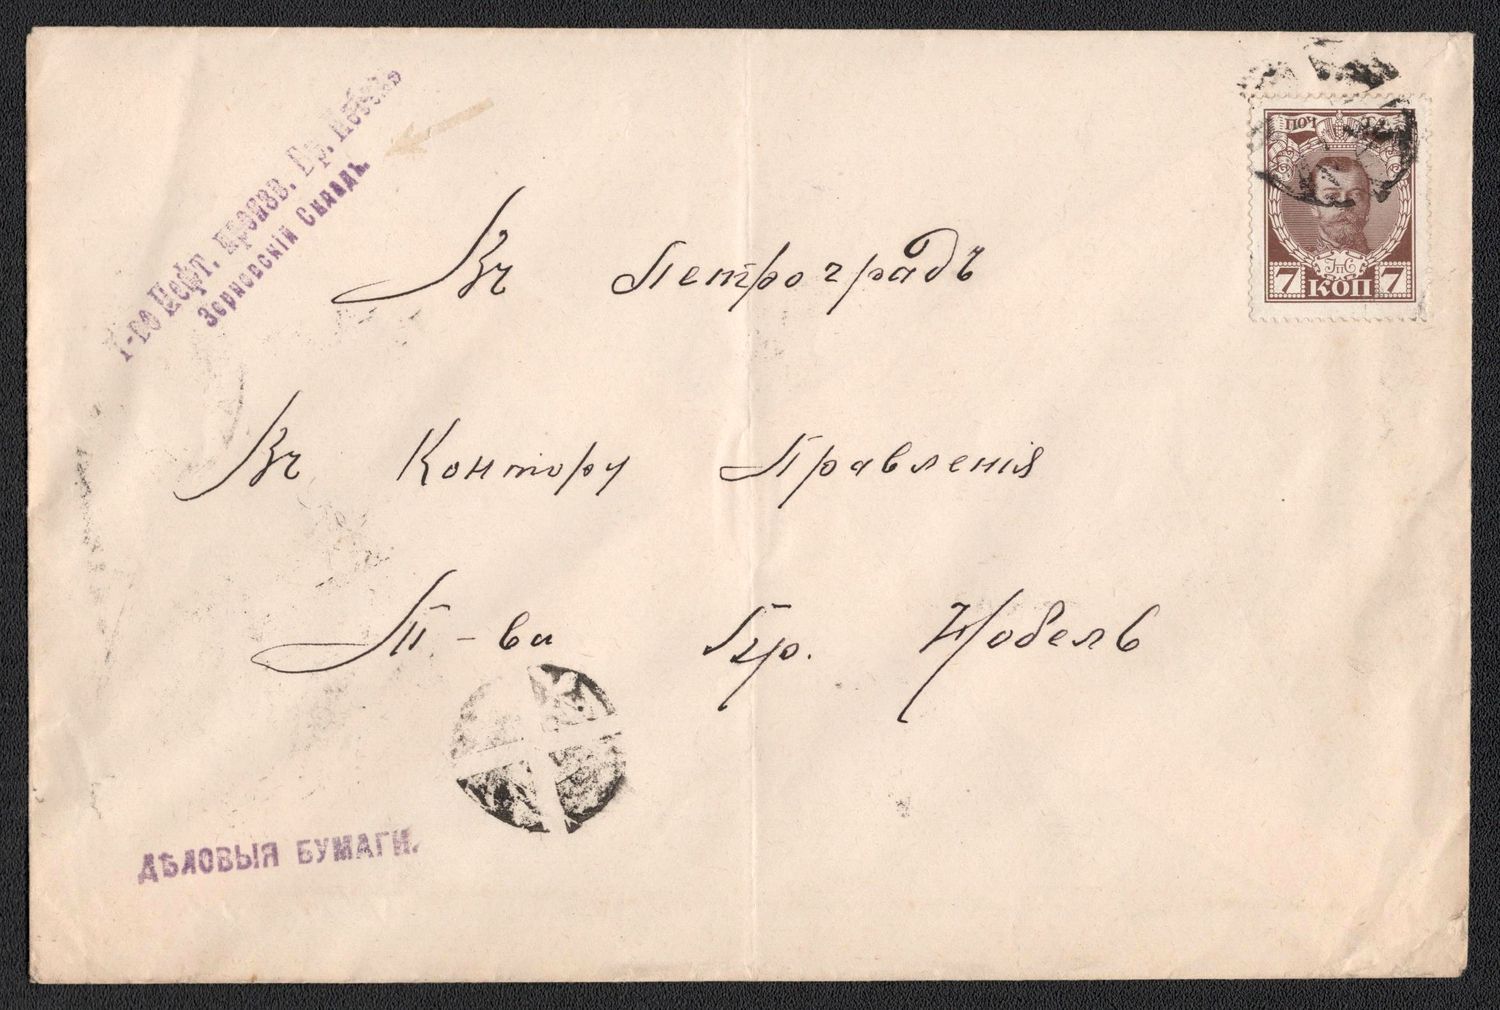 Т-во Нефт. произв. Бр. Нобель
Зерновскій Складъ.
ПОЧТА
7 КОП 7
Въ Петроградъ
Въ Контору Правленія
Т-ва Бр. Нобель
ДѢЛОВЫЯ БУМАГИ.